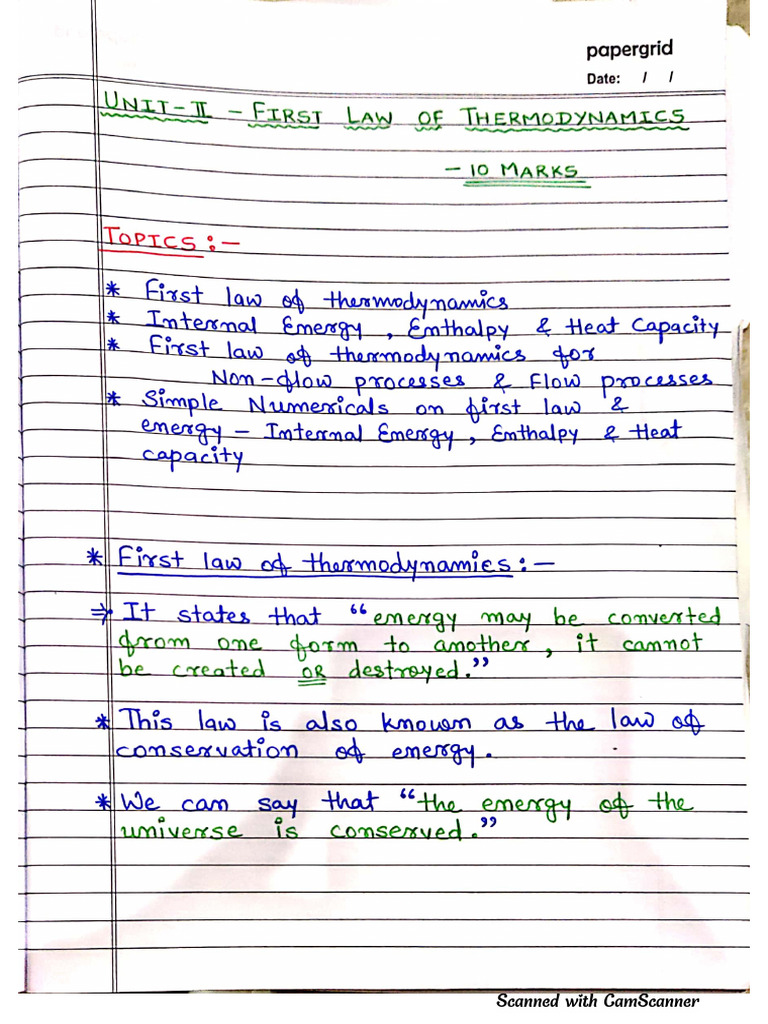 papergrid
Date: / /
UNIT-II - FIRST LAW OF THERMODYNAMICS
- 10 MARKS
TOPICS:-
* First law of thermodynamics
* Internal Energy, Enthalpy & Heat Capacity
* First law of thermodynamics for
Non-flow processes & Flow processes
* Simple Numericals on first law &
energy - Internal Energy, Enthalpy & Heat
capacity
* First law of thermodynamics:-
⇒ It states that "energy may be converted
from one form to another, it cannot
be created OR destroyed."
* This law is also known as the law of
conservation of energy.
* We can say that "the energy of the
universe is conserved."
Scanned with CamScanner